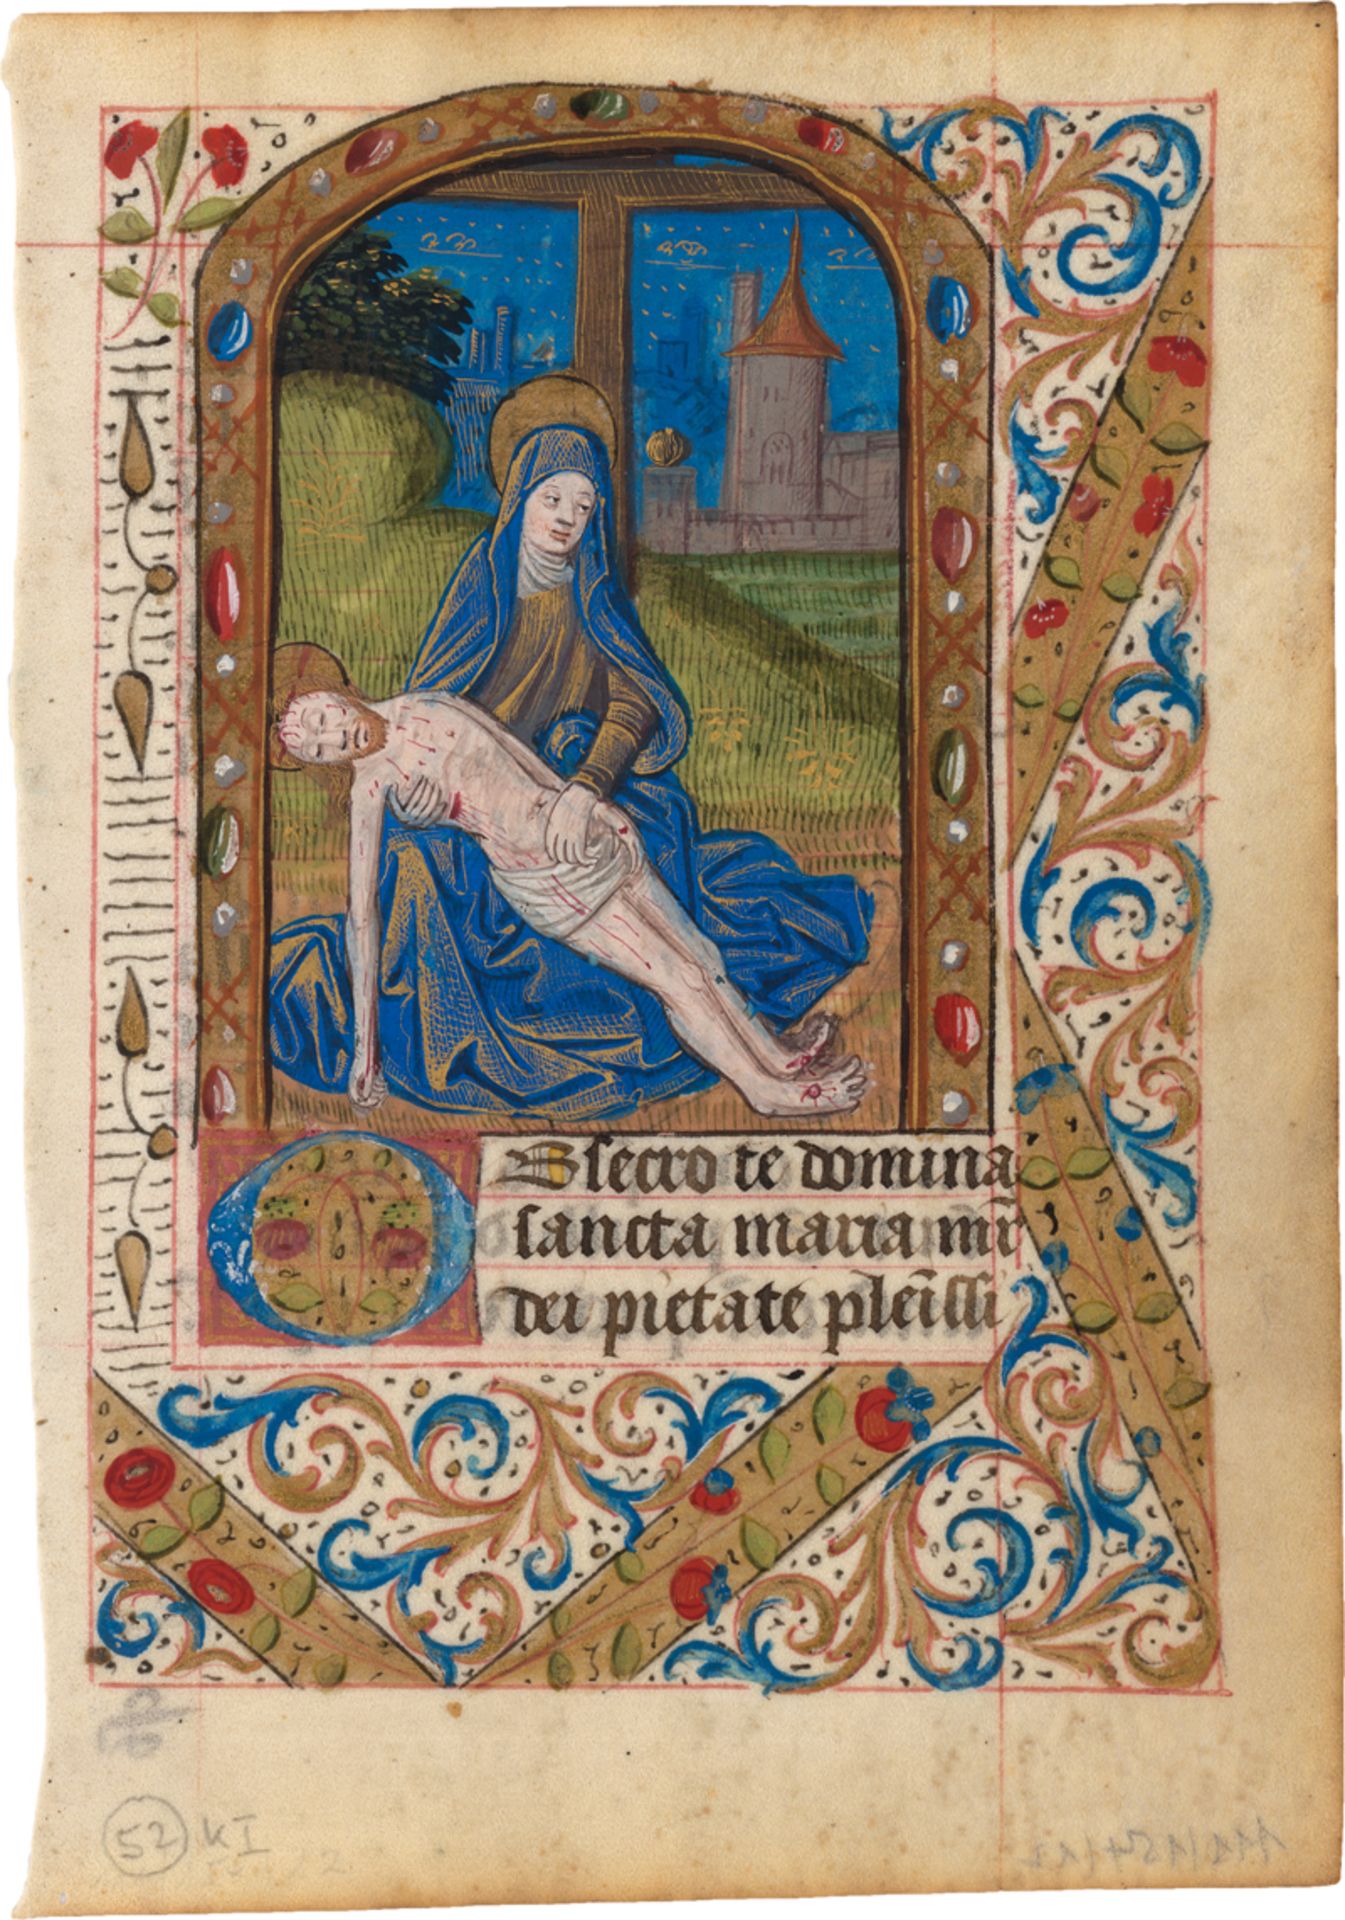 Obsecro te domina
sancta maria mr̄
dei pietate pleīssi
52 KI